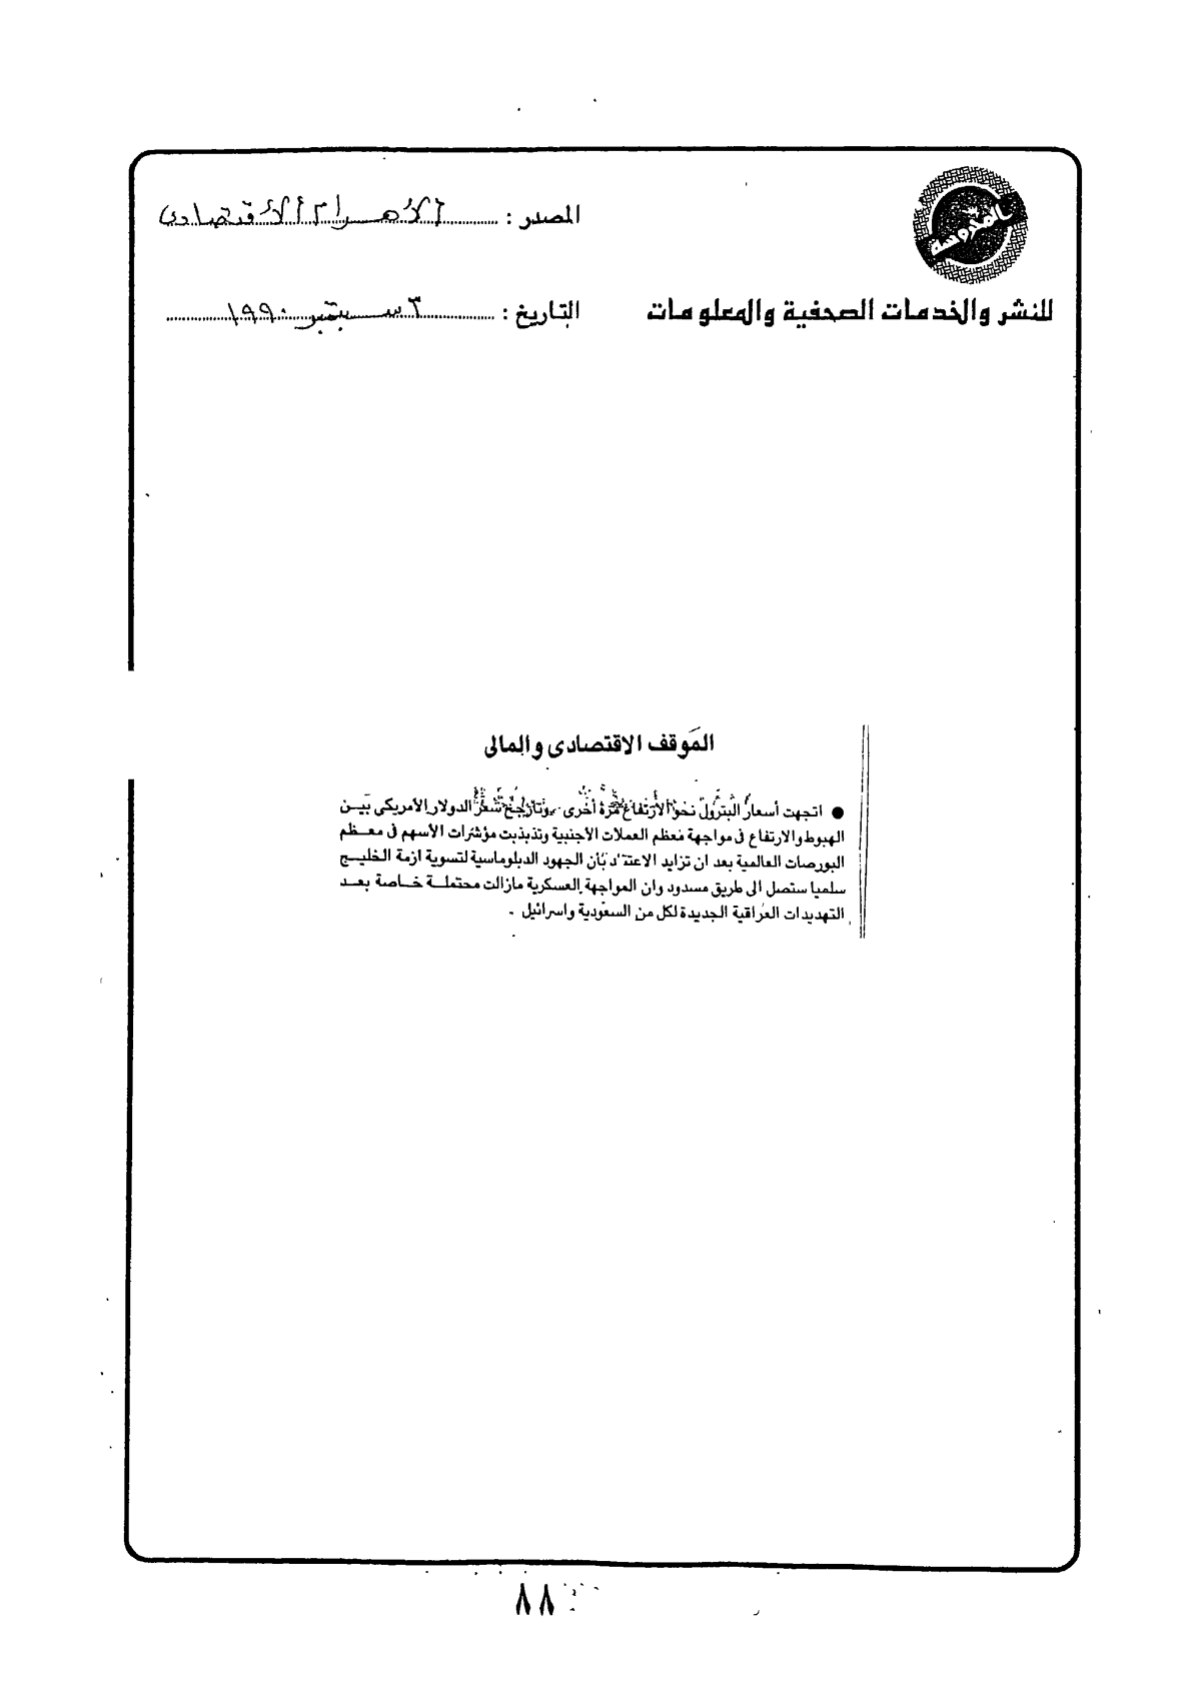 المحروسة
للنشر والخدمات الصحفية والمعلومات
المصدر : الأهرام الاقتصادى
التاريخ : ٣ سبتمبر ١٩٩٠
الموقف الاقتصادى والمالى
● اتجهت أسعار البترول نحو الارتفاع مرة أخرى وتأرجح سعر الدولار الأمريكى بين
الهبوط والارتفاع فى مواجهة معظم العملات الأجنبية وتذبذبت مؤشرات الأسهم فى معظم
البورصات العالمية بعد ان تزايد الاعتقاد بأن الجهود الدبلوماسية لتسوية ازمة الخليج
سلميا ستصل الى طريق مسدود وان المواجهة العسكرية مازالت محتملة خاصة بعد
التهديدات العراقية الجديدة لكل من السعودية واسرائيل .
٨٨